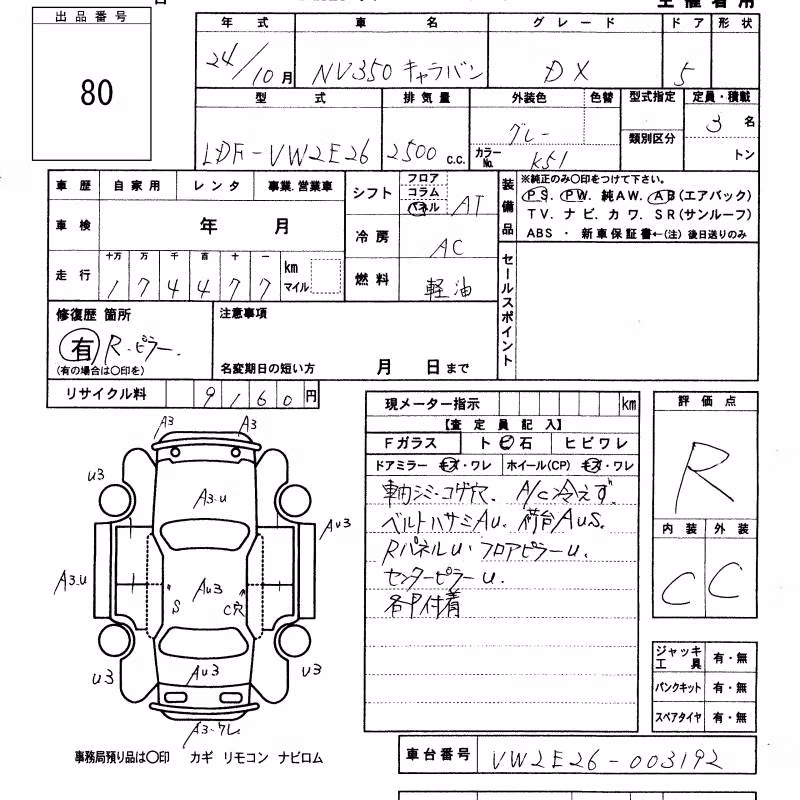 出品番号
80
主催者用
年式 車名 グレード ドア 形状
24/10月 NV350 キャラバン DX 5
型式 排気量 外装色 色替 型式指定 定員・積載
LDF-VW2E26 2500 c.c. グレー 類別区分 3 名
カラーNo. K51 トン
車歴 自家用 レンタ 事業.営業車 シフト フロア コラム パネル AT
装備品
※純正のみ〇印をつけて下さい。
PS. PW. 純AW. AB(エアバック)
TV. ナビ. カワ. SR(サンルーフ)
ABS ・ 新車保証書←(注) 後日送りのみ
車検 年 月 冷房 AC
走行 十万 万 千 百 十 一 km マイル 燃料 軽油
1 7 4 4 7 7
セールスポイント
修復歴 箇所 注意事項
有 R-ピラー.
(有の場合は〇印を) 名変期日の短い方 月 日まで
リサイクル料 9 1 6 0 円
現メーター指示 km
【査定員記入】
Fガラス トビ石 ヒビワレ
ドアミラー キズ・ワレ ホイール(CP) キズ・ワレ
車内シミ・コゲ穴. A/C冷えず.
ベルトハサミAu. 荷台AuS.
RパネルU. フロアピラーu.
センターピラーu.
各甲付着
評価点
R
内装 外装
C C
ジャッキ工具 有・無
パンクキット 有・無
スペアタイヤ 有・無
A3 A3
u3 A3.u
Au3
A3.u Au3
S C穴
u3 Au3 u3
A3-ワレ
事務局預り品は〇印 カギ リモコン ナビロム
車台番号 VW2E26-003192